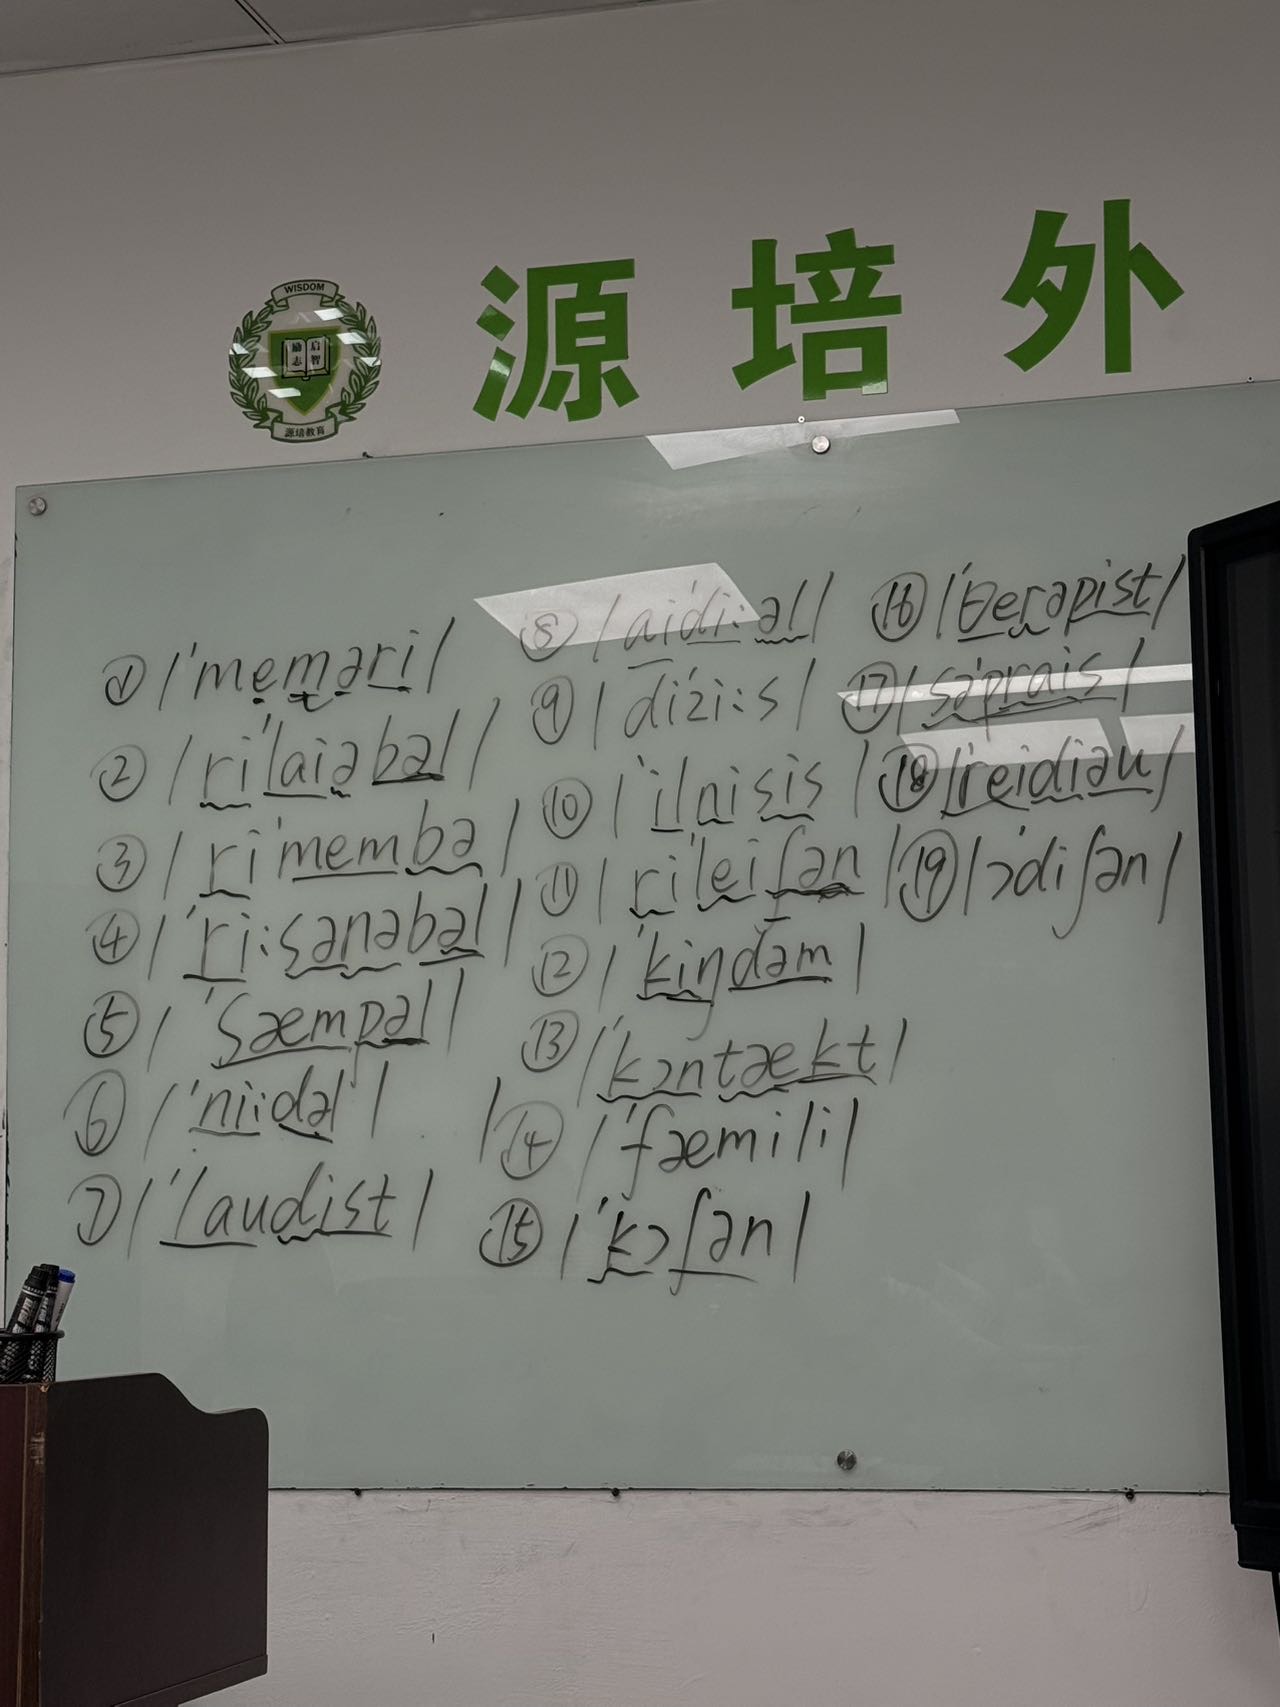 WISDOM
励志 启智
源培教育
源培外
① /'meməri/
② /ri'laiəbəl/
③ /ri'membə/
④ /'ri:sənəbəl/
⑤ /'sæmpəl/
⑥ /'ni:dəl/
⑦ /'laudist/
⑧ /ai'di:əl/
⑨ /di'zi:s/
⑩ /'ilnisis/
⑪ /ri'leiʃən/
⑫ /'kiŋdəm/
⑬ /'kɔntækt/
⑭ /'fæmili/
⑮ /'kɔʃən/
⑯ /'θerəpist/
⑰ /sə'prais/
⑱ /'reidiəu/
⑲ /ɔ'diʃən/